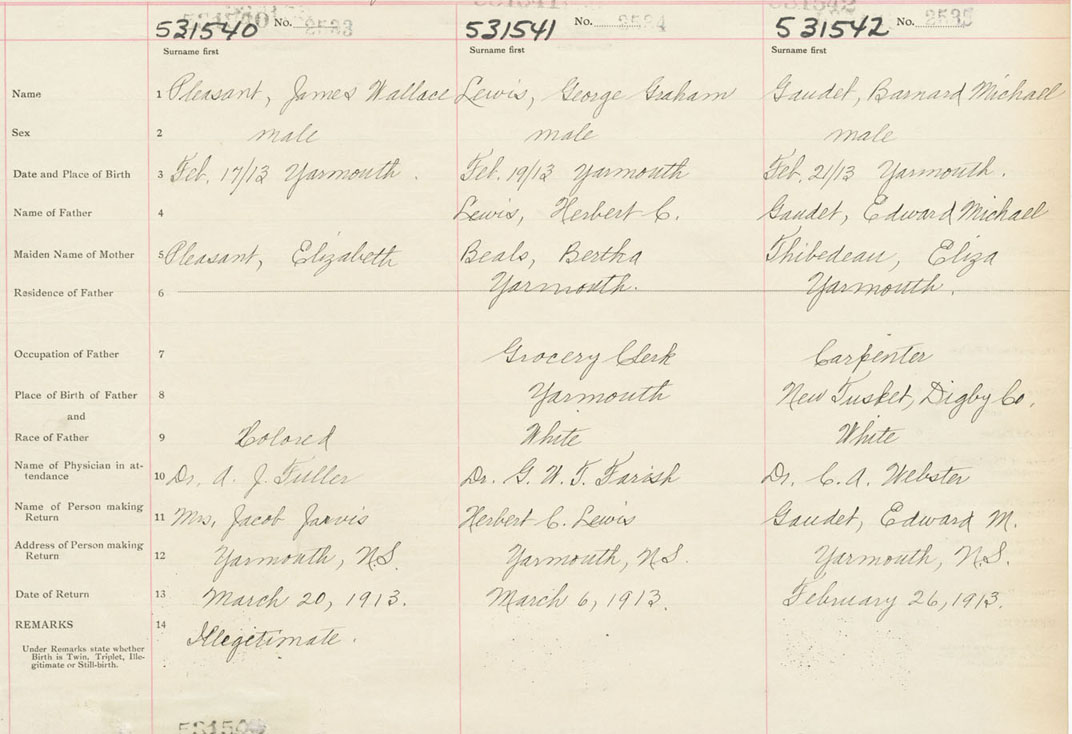 531540 No. 2533 531541 No. 2534 531542 No. 2535
Surname first Surname first Surname first
Name 1 Pleasant, James Wallace Lewis, George Graham Gaudet, Barnard Michael
Sex 2 male male male
Date and Place of Birth 3 Feb. 17/13 Yarmouth. Feb. 19/13 Yarmouth Feb. 21/13 Yarmouth.
Name of Father 4 Lewis, Herbert C. Gaudet, Edward Michael
Maiden Name of Mother 5 Pleasant, Elizabeth Beals, Bertha Thibedeau, Eliza
Residence of Father 6 Yarmouth. Yarmouth.
Occupation of Father 7 Grocery Clerk Carpenter
Place of Birth of Father 8 Yarmouth New Tusket, Digby Co.
and
Race of Father 9 Colored White White
Name of Physician in at-
tendance 10 Dr. A. J. Fuller Dr. G. W. T. Farish Dr. C. A. Webster
Name of Person making
Return 11 Mrs. Jacob Jarvis Herbert C. Lewis Gaudet, Edward M.
Address of Person making
Return 12 Yarmouth, N.S. Yarmouth, N.S. Yarmouth, N.S.
Date of Return 13 March 20, 1913. March 6, 1913. February 26, 1913.
REMARKS 14 Illegitimate.
Under Remarks state whether
Birth is Twin, Triplet, Ille-
gitimate or Still-birth.